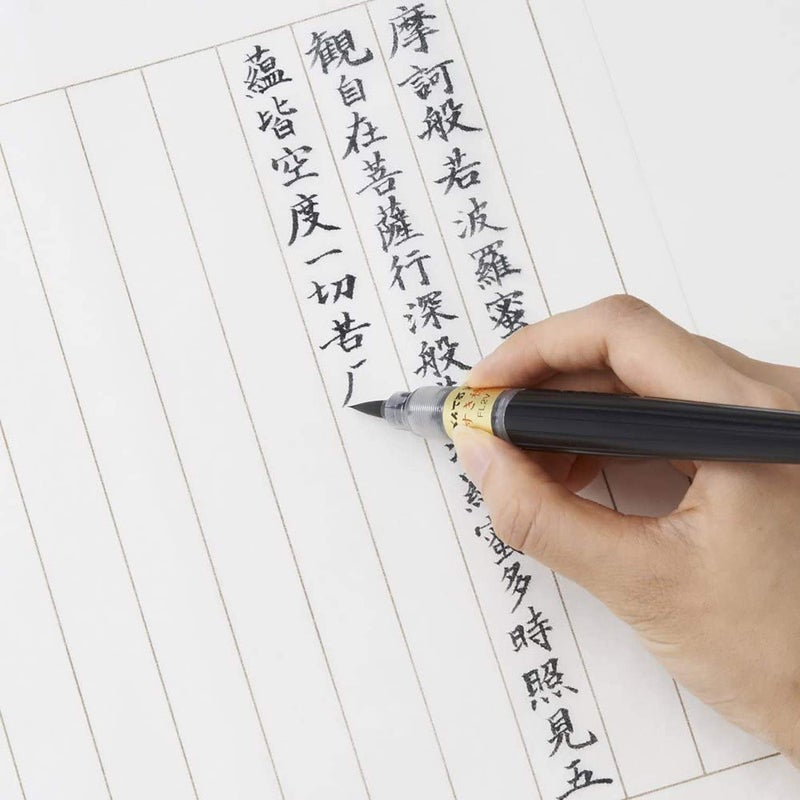 摩訶般若波羅蜜
観自在菩薩行深般 蜜多時照見五
蘊皆空度一切苦
FL2V